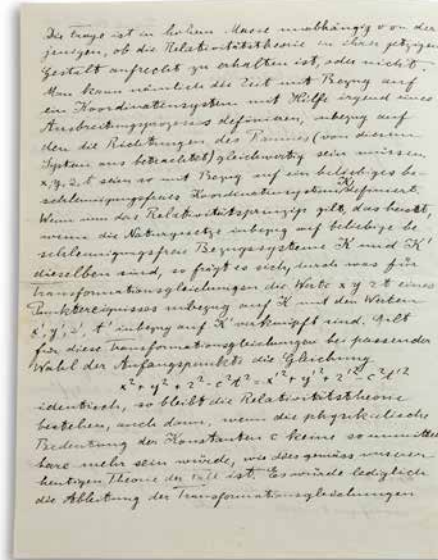 Die Frage ist in hohem Masse unabhängig von der
jenigen, ob die Relativitätstheorie in ihrer jetzigen
Gestalt aufrecht zu erhalten ist, oder nicht.
Man kann nämlich die Zeit mit Bezug auf
ein Koordinatensystem mit Hilfe irgend eines
Ausbreitungsprozesses definieren, inbezug auf
den die Richtungen des Raumes (von diesem
System aus betrachtet) gleichwertig sein müssen.
x, y, z, t seien so mit Bezug auf ein beliebiges be-
schleunigungsfreies Koordinatensystem K definiert.
Wenn nun das Relativitätsprinzip gilt, das heisst,
wenn die Naturgesetze inbezug auf beliebige be
schleunigungsfreie Bezugssysteme K und K'
dieselben sind, so frägt es sich, durch was für
Transformationsgleichungen die Werte x y z t eines
Punktereignisses inbezug auf K mit den Werten
x', y', z', t' inbezug auf K' verknüpft sind. Gilt
für diese Transformationsgleichungen bei passender
Wahl der Anfangspunkte die Gleichung
x² + y² + z² - c²t² = x'² + y'² + z'² - c²t'²
identisch, so bleibt die Relativitätstheorie
bestehen, auch dann, wenn die physikalische
Bedeutung der Konstanten c keine so unmittel
bare mehr sein würde, wie dies gemäss unserer
heutigen Theorie der Fall ist. Es würde lediglich
die Ableitung der Transformationsgleichungen